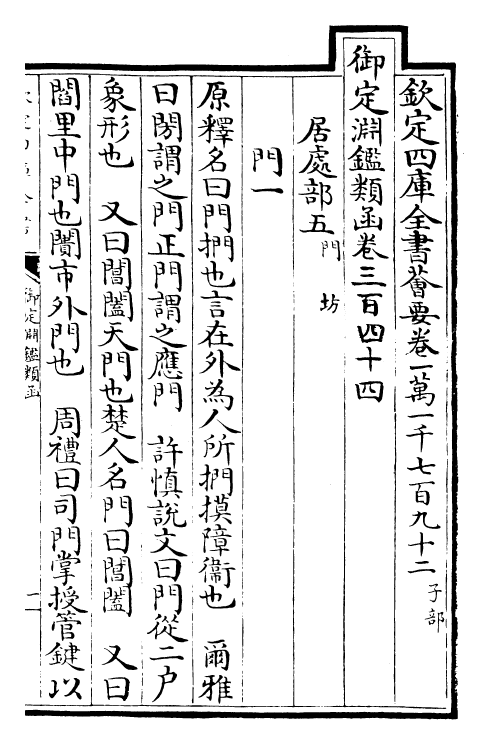 欽定四庫全書薈要卷一萬一千七百九十二 子部
御定淵鑑類函卷三百四十四
居處部五 門 坊
門一
原釋名曰門捫也言在外為人所捫摸障衞也 爾雅
曰閍謂之門正門謂之應門 許慎說文曰門從二户
象形也 又曰閶闔天門也楚人名門曰閶闔 又曰
閻里中門也闠市外門也 周禮曰司門掌授管鍵以
御定淵鑑類函
一